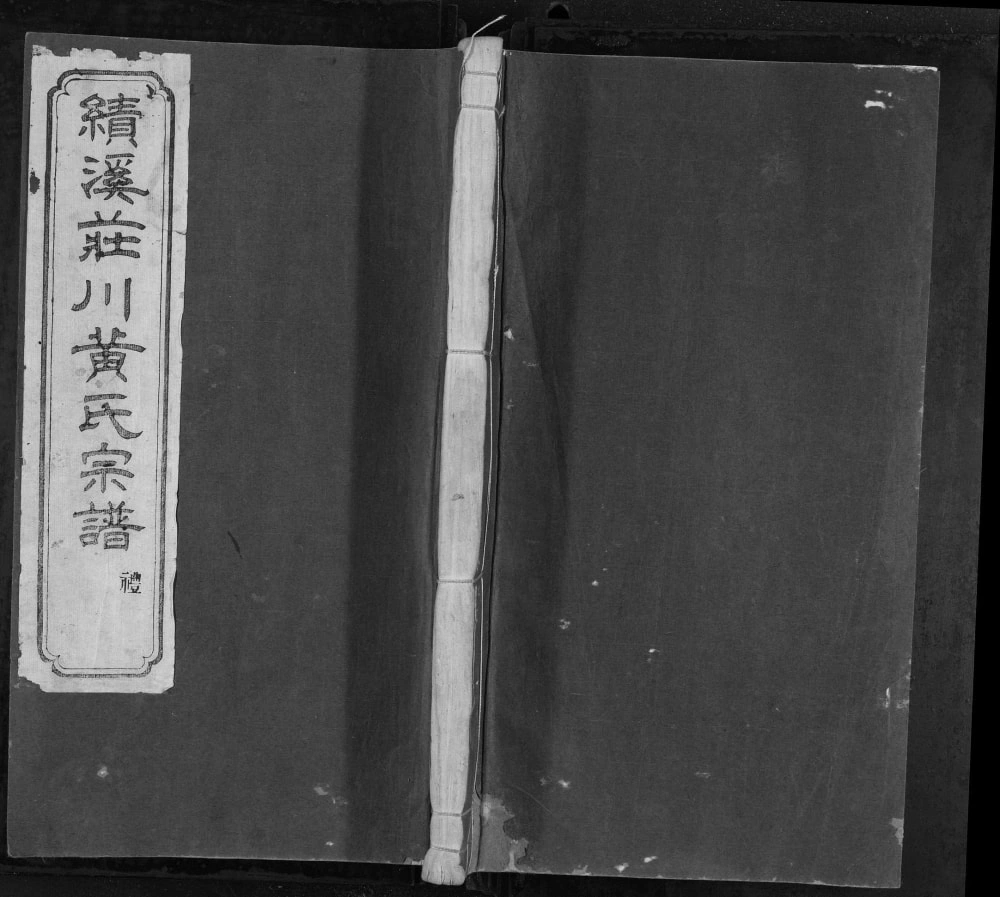 績溪莊川黃氏宗譜
禮